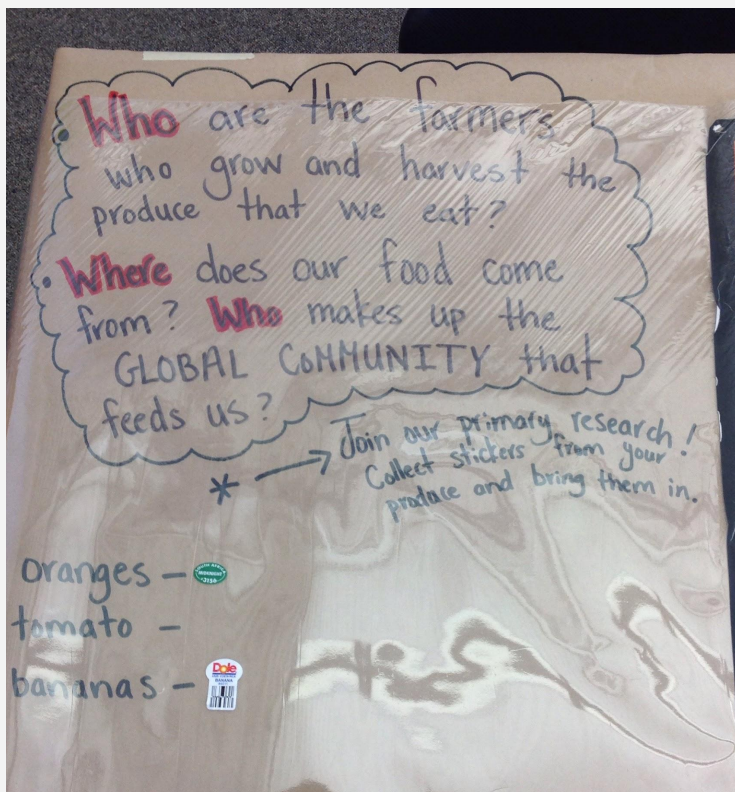 Who are the farmers
who grow and harvest the
produce that we eat?
Where does our food come
from? Who makes up the
GLOBAL CoMMUNITY that
feeds us?
* → Join our primary research!
Collect stickers from your
produce and bring them in.
oranges –
SOUTH AFRICA
3156
tomato –
bananas –
Dole
BANANA